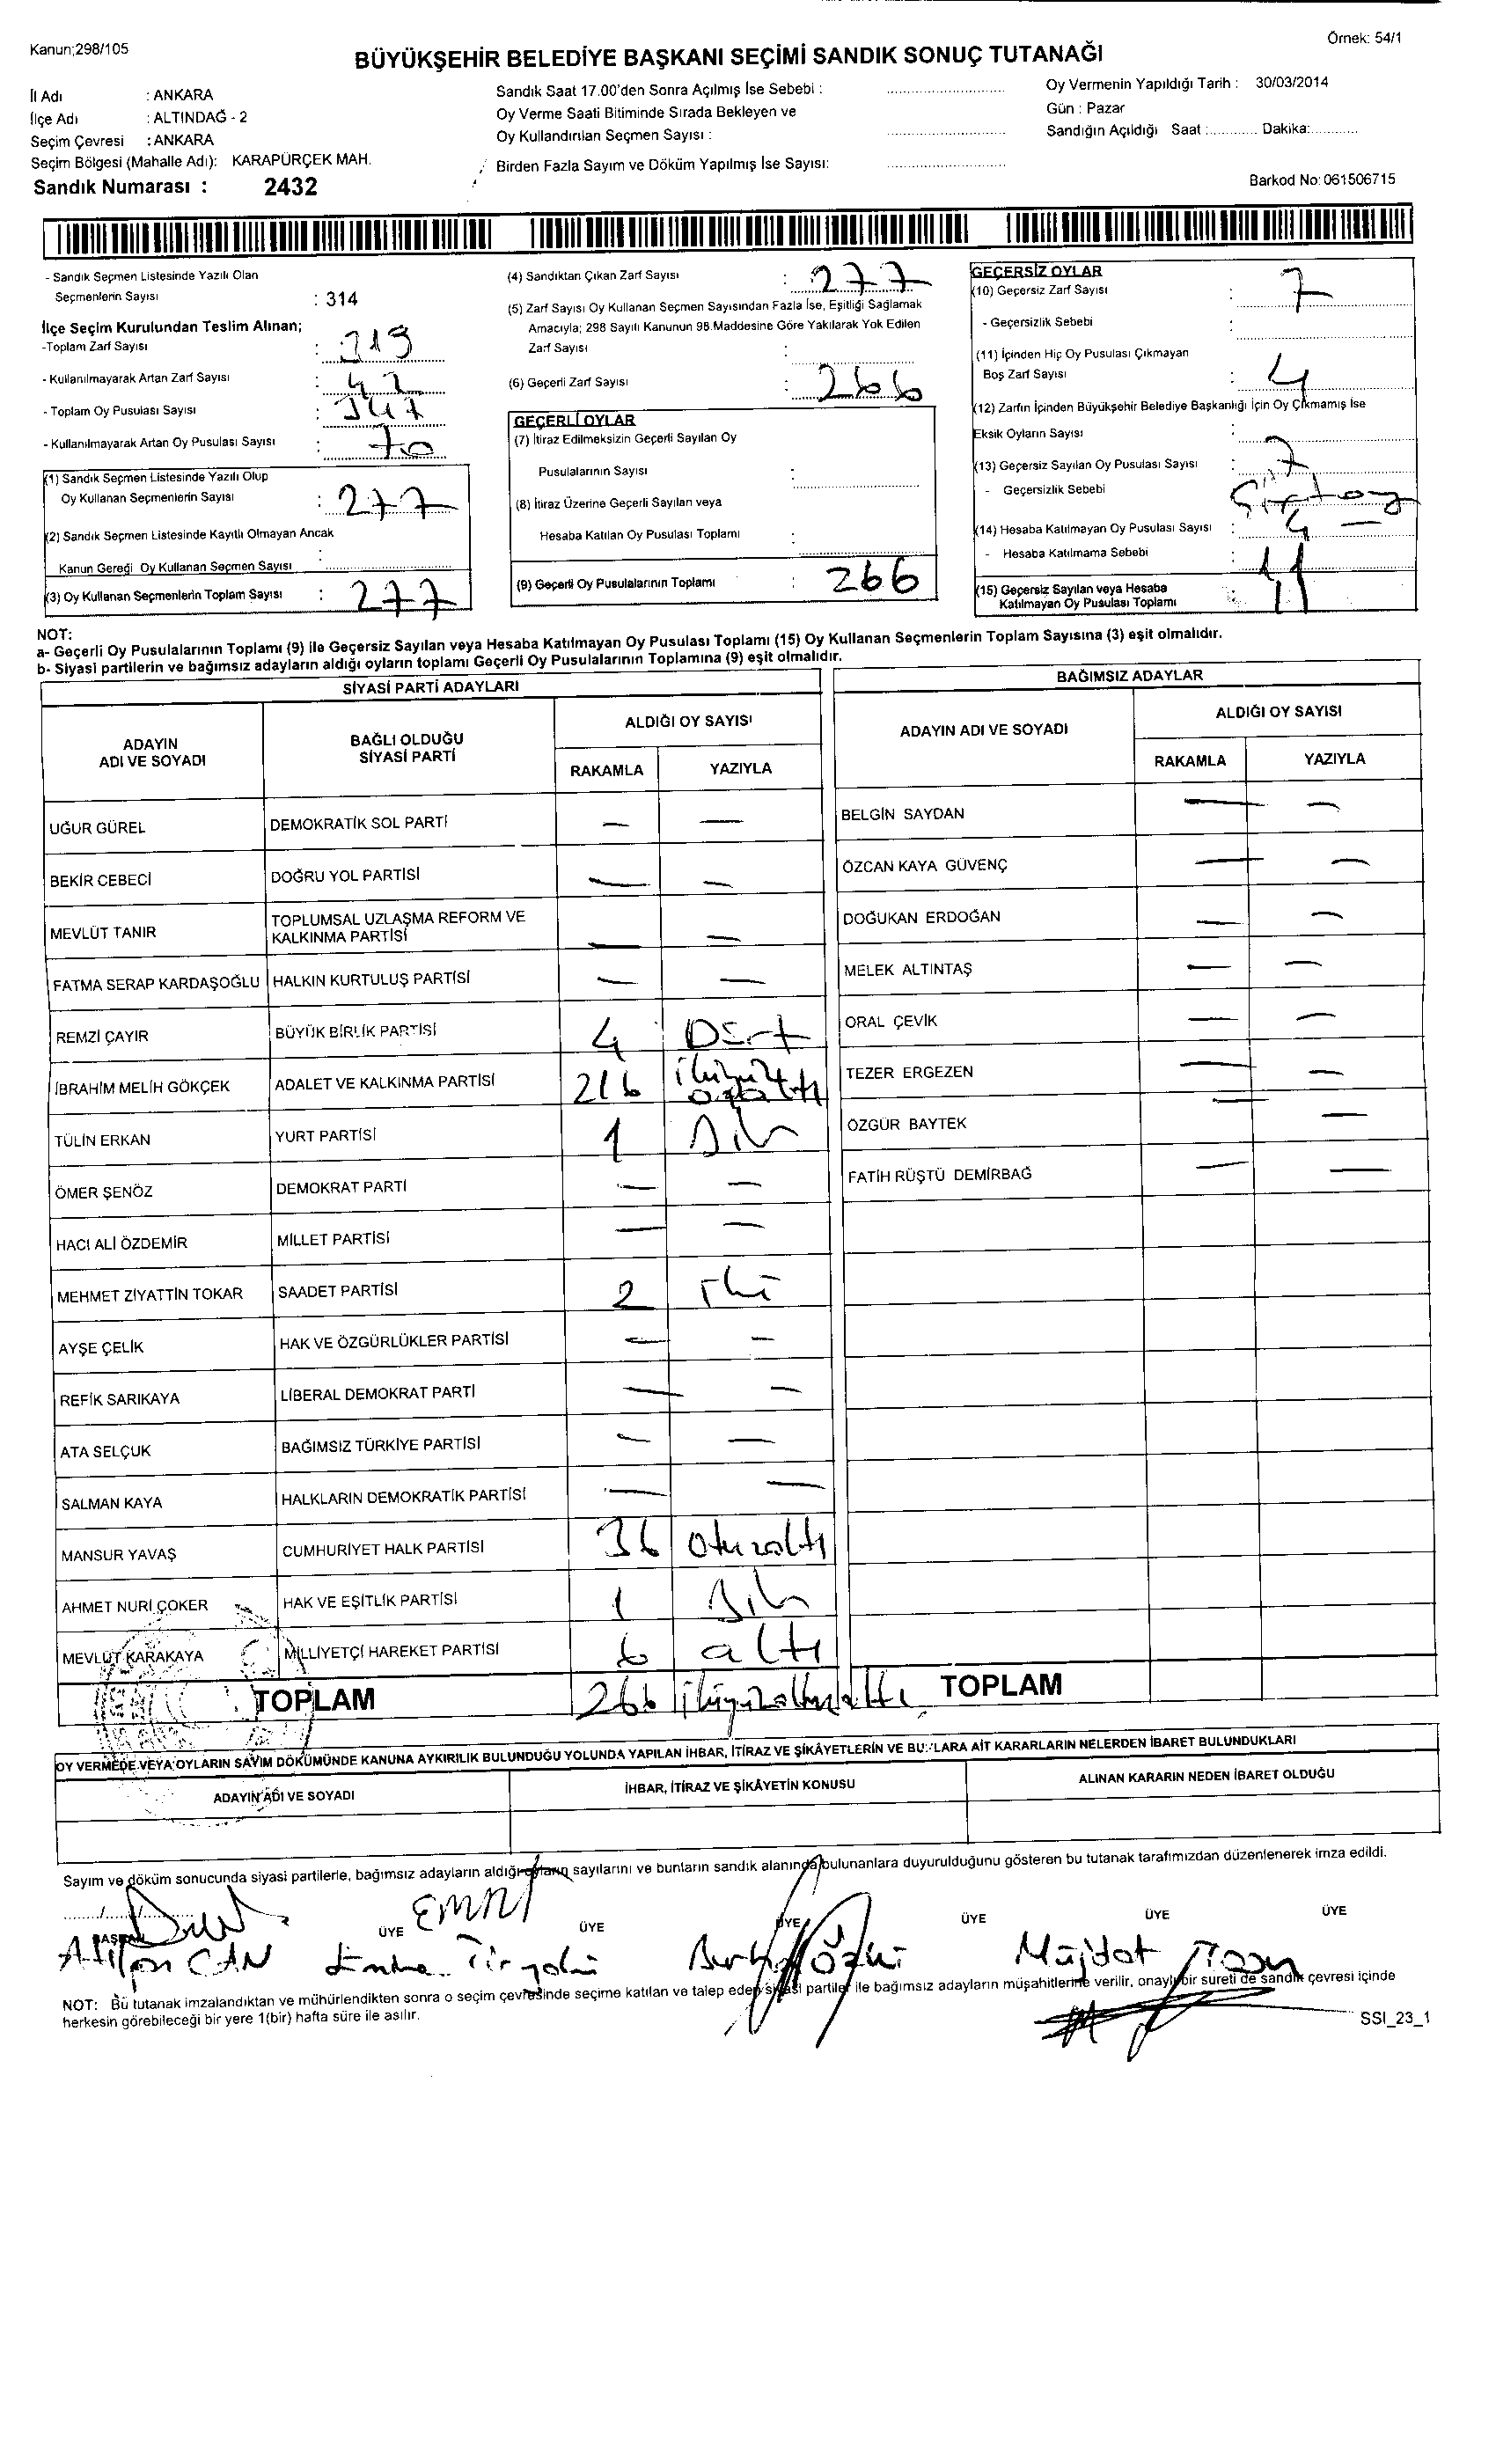 Kanun;298/105
Örnek: 54/1
BÜYÜKŞEHİR BELEDİYE BAŞKANI SEÇİMİ SANDIK SONUÇ TUTANAĞI
İl Adı : ANKARA
İlçe Adı : ALTINDAĞ - 2
Seçim Çevresi : ANKARA
Seçim Bölgesi (Mahalle Adı): KARAPÜRÇEK MAH.
Sandık Numarası : 2432
Sandık Saat 17.00'den Sonra Açılmış İse Sebebi :
Oy Verme Saati Bitiminde Sırada Bekleyen ve
Oy Kullandırılan Seçmen Sayısı :
Birden Fazla Sayım ve Döküm Yapılmış İse Sayısı:
Oy Vermenin Yapıldığı Tarih : 30/03/2014
Gün : Pazar
Sandığın Açıldığı Saat :............ Dakika:............
Barkod No: 061506715
- Sandık Seçmen Listesinde Yazılı Olan
Seçmenlerin Sayısı : 314
İlçe Seçim Kurulundan Teslim Alınan;
-Toplam Zarf Sayısı : 319
- Kullanılmayarak Artan Zarf Sayısı : 42
- Toplam Oy Pusulası Sayısı : 347
- Kullanılmayarak Artan Oy Pusulası Sayısı : 70
(1) Sandık Seçmen Listesinde Yazılı Olup
Oy Kullanan Seçmenlerin Sayısı : 277
(2) Sandık Seçmen Listesinde Kayıtlı Olmayan Ancak
Kanun Gereği Oy Kullanan Seçmen Sayısı :
(3) Oy Kullanan Seçmenlerin Toplam Sayısı : 277
(4) Sandıktan Çıkan Zarf Sayısı : 277
(5) Zarf Sayısı Oy Kullanan Seçmen Sayısından Fazla İse, Eşitliği Sağlamak
Amacıyla; 298 Sayılı Kanunun 98.Maddesine Göre Yakılarak Yok Edilen
Zarf Sayısı :
(6) Geçerli Zarf Sayısı : 266
GEÇERLİ OYLAR
(7) İtiraz Edilmeksizin Geçerli Sayılan Oy
Pusulalarının Sayısı :
(8) İtiraz Üzerine Geçerli Sayılan veya
Hesaba Katılan Oy Pusulası Toplamı :
(9) Geçerli Oy Pusulalarının Toplamı : 266
GEÇERSİZ OYLAR
(10) Geçersiz Zarf Sayısı : 7
- Geçersizlik Sebebi :
(11) İçinden Hiç Oy Pusulası Çıkmayan
Boş Zarf Sayısı : 4
(12) Zarfın İçinden Büyükşehir Belediye Başkanlığı İçin Oy Çıkmamış İse
Eksik Oyların Sayısı :
(13) Geçersiz Sayılan Oy Pusulası Sayısı : 7
- Geçersizlik Sebebi
(14) Hesaba Katılmayan Oy Pusulası Sayısı : 4 —
- Hesaba Katılmama Sebebi :
(15) Geçersiz Sayılan veya Hesaba
Katılmayan Oy Pusulası Toplamı : 11
NOT:
a- Geçerli Oy Pusulalarının Toplamı (9) ile Geçersiz Sayılan veya Hesaba Katılmayan Oy Pusulası Toplamı (15) Oy Kullanan Seçmenlerin Toplam Sayısına (3) eşit olmalıdır.
b- Siyasi partilerin ve bağımsız adayların aldığı oyların toplamı Geçerli Oy Pusulalarının Toplamına (9) eşit olmalıdır.
SİYASİ PARTİ ADAYLARI
ADAYIN ADI VE SOYADI BAĞLI OLDUĞU SİYASİ PARTİ ALDIĞI OY SAYISI
RAKAMLA YAZIYLA
UĞUR GÜREL DEMOKRATİK SOL PARTİ — —
BEKİR CEBECİ DOĞRU YOL PARTİSİ — —
MEVLÜT TANIR TOPLUMSAL UZLAŞMA REFORM VE KALKINMA PARTİSİ — —
FATMA SERAP KARDAŞOĞLU HALKIN KURTULUŞ PARTİSİ — —
REMZİ ÇAYIR BÜYÜK BİRLİK PARTİSİ 4 Dört
İBRAHİM MELİH GÖKÇEK ADALET VE KALKINMA PARTİSİ 216 ikiyüz onaltı
TÜLİN ERKAN YURT PARTİSİ 1 Bir
ÖMER ŞENÖZ DEMOKRAT PARTİ — —
HACI ALİ ÖZDEMİR MİLLET PARTİSİ — —
MEHMET ZİYATTİN TOKAR SAADET PARTİSİ 2 iki
AYŞE ÇELİK HAK VE ÖZGÜRLÜKLER PARTİSİ — —
REFİK SARIKAYA LİBERAL DEMOKRAT PARTİ — —
ATA SELÇUK BAĞIMSIZ TÜRKİYE PARTİSİ — —
SALMAN KAYA HALKLARIN DEMOKRATİK PARTİSİ — —
MANSUR YAVAŞ CUMHURİYET HALK PARTİSİ 36 Otuzaltı
AHMET NURİ ÇOKER HAK VE EŞİTLİK PARTİSİ 1 Bir
MEVLÜT KARAKAYA MİLLİYETÇİ HAREKET PARTİSİ 6 altı
TOPLAM 266 ikiyüzaltmışaltı
BAĞIMSIZ ADAYLAR
ADAYIN ADI VE SOYADI ALDIĞI OY SAYISI
RAKAMLA YAZIYLA
BELGİN SAYDAN — —
ÖZCAN KAYA GÜVENÇ — —
DOĞUKAN ERDOĞAN — —
MELEK ALTINTAŞ — —
ORAL ÇEVİK — —
TEZER ERGEZEN — —
ÖZGÜR BAYTEK — —
FATİH RÜŞTÜ DEMİRBAĞ — —
TOPLAM
OY VERMEDE VEYA OYLARIN SAYIM DÖKÜMÜNDE KANUNA AYKIRILIK BULUNDUĞU YOLUNDA YAPILAN İHBAR, İTİRAZ VE ŞİKÂYETLERİN VE BUNLARA AİT KARARLARIN NELERDEN İBARET BULUNDUKLARI
ADAYIN ADI VE SOYADI İHBAR, İTİRAZ VE ŞİKÂYETİN KONUSU ALINAN KARARIN NEDEN İBARET OLDUĞU
Sayım ve döküm sonucunda siyasi partilerle, bağımsız adayların aldığı oyların sayılarını ve bunların sandık alanında bulunanlara duyurulduğunu gösteren bu tutanak tarafımızdan düzenlenerek imza edildi.
BAŞKAN ÜYE ÜYE ÜYE ÜYE ÜYE ÜYE
CAN Müjdat
NOT: Bu tutanak imzalandıktan ve mühürlendikten sonra o seçim çevresinde seçime katılan ve talep eden siyasi partiler ile bağımsız adayların müşahitlerine verilir, onaylı bir sureti de sandık çevresi içinde
herkesin görebileceği bir yere 1(bir) hafta süre ile asılır.
SSI_23_1